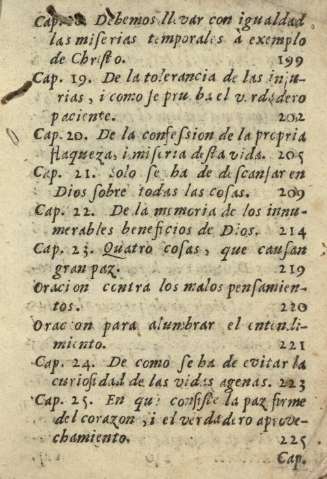 Cap. Debemos llevar con igualdad
las miserias temporales à exemplo
de Christo. 199
Cap. 19. De la tolerancia de las inju-
rias, i como se prueba el verdadero
paciente. 202
Cap. 20. De la confession de la propria
flaqueza, i miseria desta vida. 205
Cap. 21. Solo se ha de descansar en
Dios sobre todas las cosas. 209
Cap. 22. De la memoria de los innu-
merables beneficios de Dios. 214
Cap. 23. Quatro cosas, que causan
gran paz. 219
Oracion contra los malos pensamien-
tos. 220
Oracion para alumbrar el entendi-
miento. 221
Cap. 24. De como se ha de evitar la
curiosidad de las vidas agenas. 223
Cap. 25. En que consiste la paz firme
del corazon, i el verdadero aprove-
chamiento. 225
Cap.